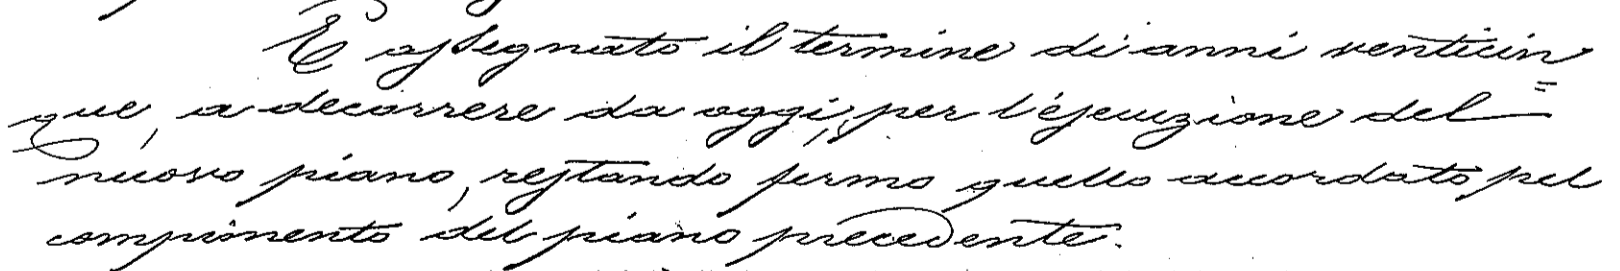 È assegnato il termine di anni venticin=
que, a decorrere da oggi, per l'esecuzione del
nuovo piano, restando fermo quello accordato pel
compimento del piano precedente.